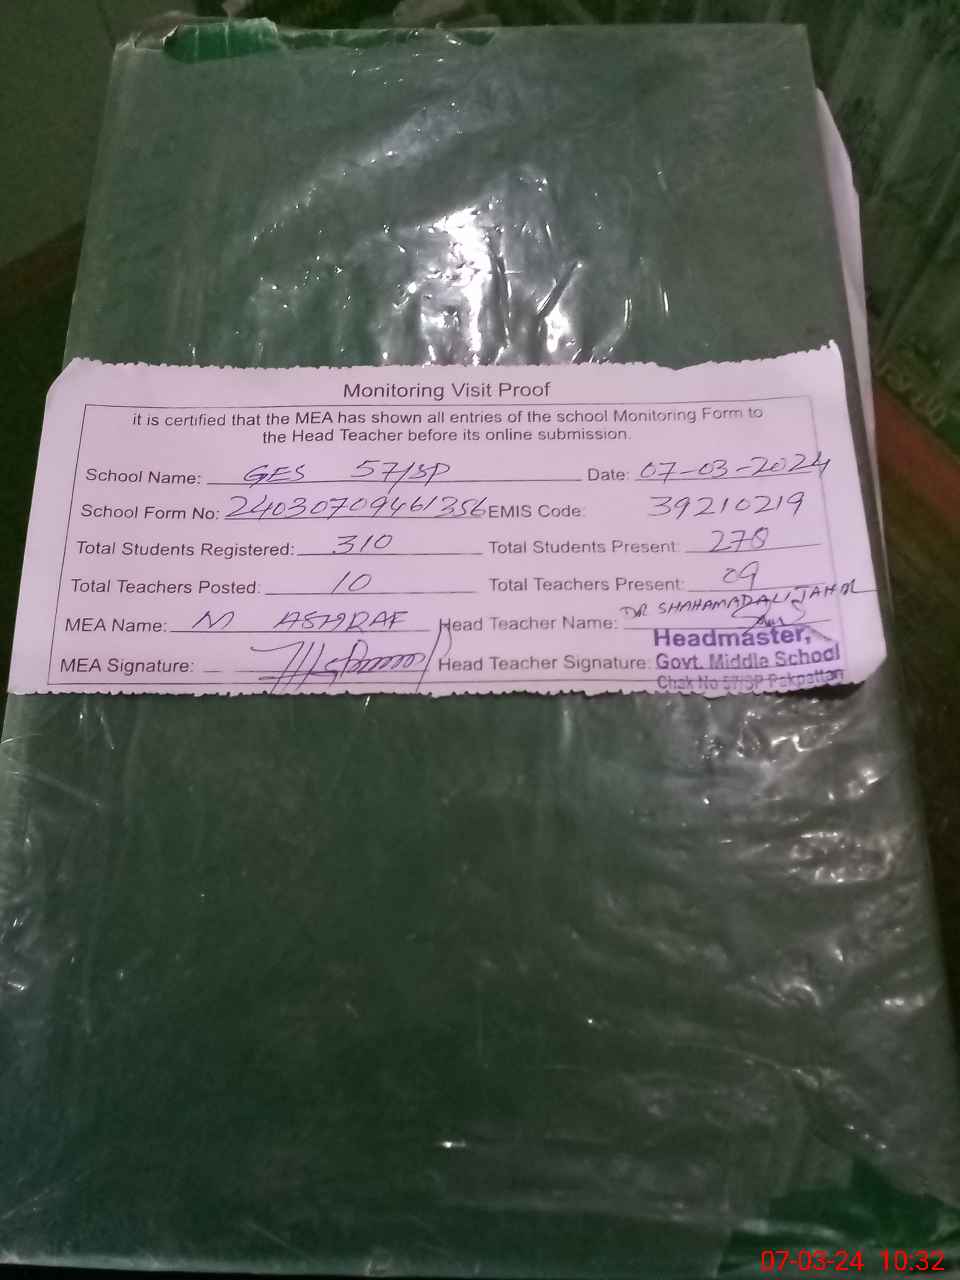 Monitoring Visit Proof
it is certified that the MEA has shown all entries of the school Monitoring Form to
the Head Teacher before its online submission.
School Name: GES 57/SP Date: 07-03-2024
School Form No: 24030709461356 EMIS Code: 39210219
Total Students Registered: 310 Total Students Present: 278
Total Teachers Posted: 10 Total Teachers Present: 09
MEA Name: M ASHRAF Head Teacher Name: DR SHAHAMAD ALI TAHIR
MEA Signature: Head Teacher Signature:
Headmaster,
Govt. Middle School
Chak No 57/SP Pakpattan
07-03-24 10:32